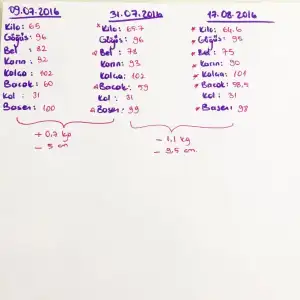 09.07.2016
Kilo: 65
Göğüs: 96
Bel : 82
Karın : 92
Kalça : 102
Bacak : 60
Kol : 31
Basen : 100
+ 0,7 kg
- 5 cm
31.07.2016
Kilo: 65.7
Göğüs : 96
Bel : 78
Karın : 93
Kalça: 102
Bacak: 59
Kol : 31
Basen: 99
- 1,1 kg
- 9,5 cm
17.08.2016
Kilo: 64.6
Göğüs: 95
Bel : 75
Karın : 90
Kalça: 101
Bacak: 58,5
Kol : 31
Basen: 98